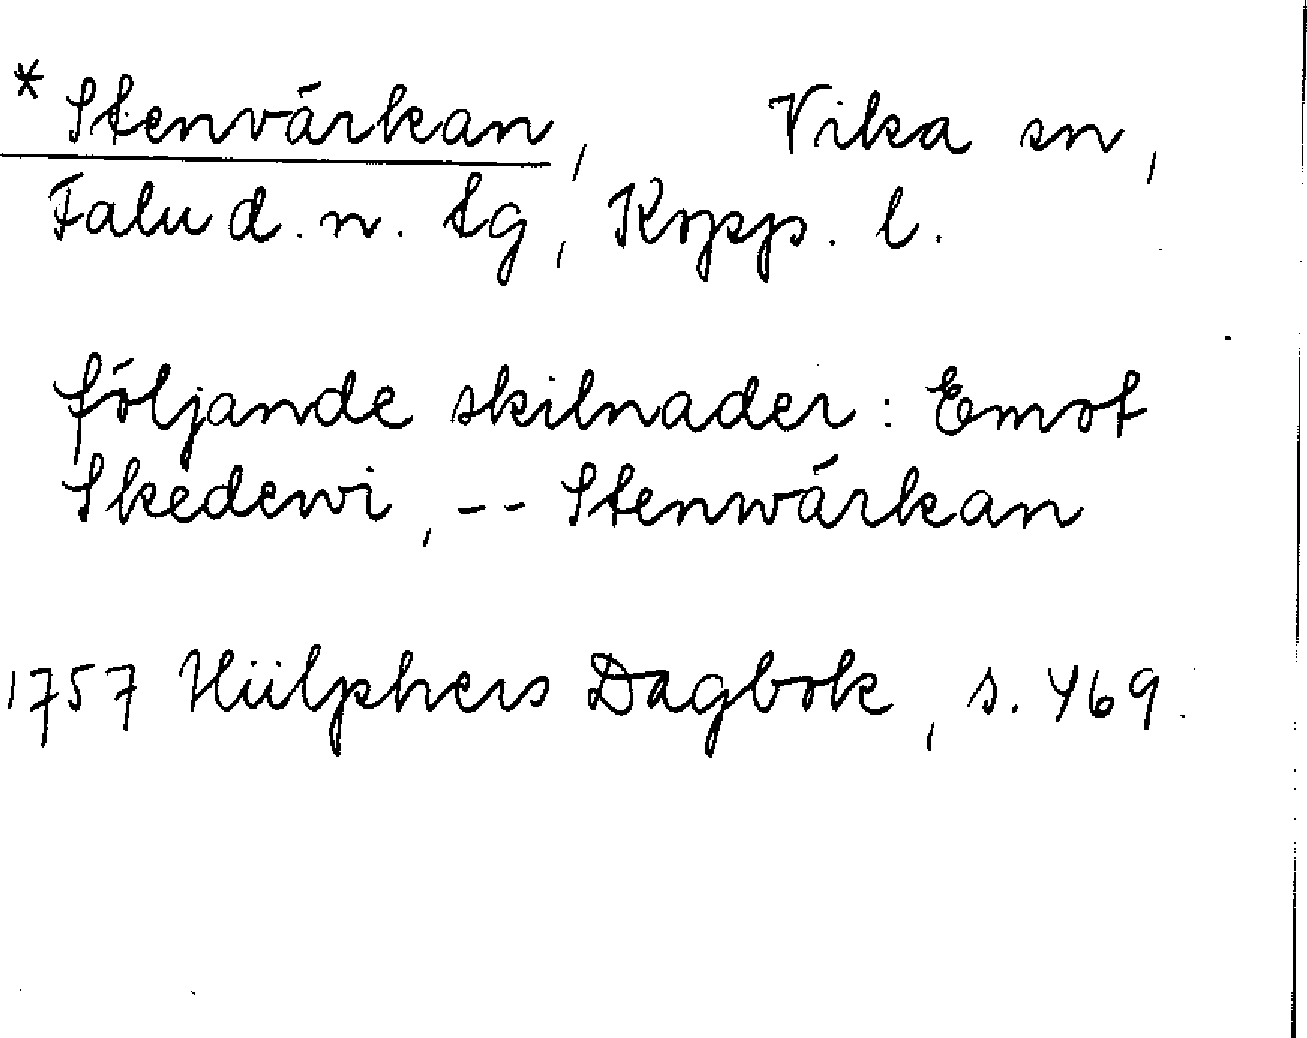 * Stenvärkan, Vika sn,
Falu d. n. tg, Kopp. l.
följande skilnader: Emot
Skedewi, -- Stenwärkan
1757 Hülphers Dagbok, s. 469.